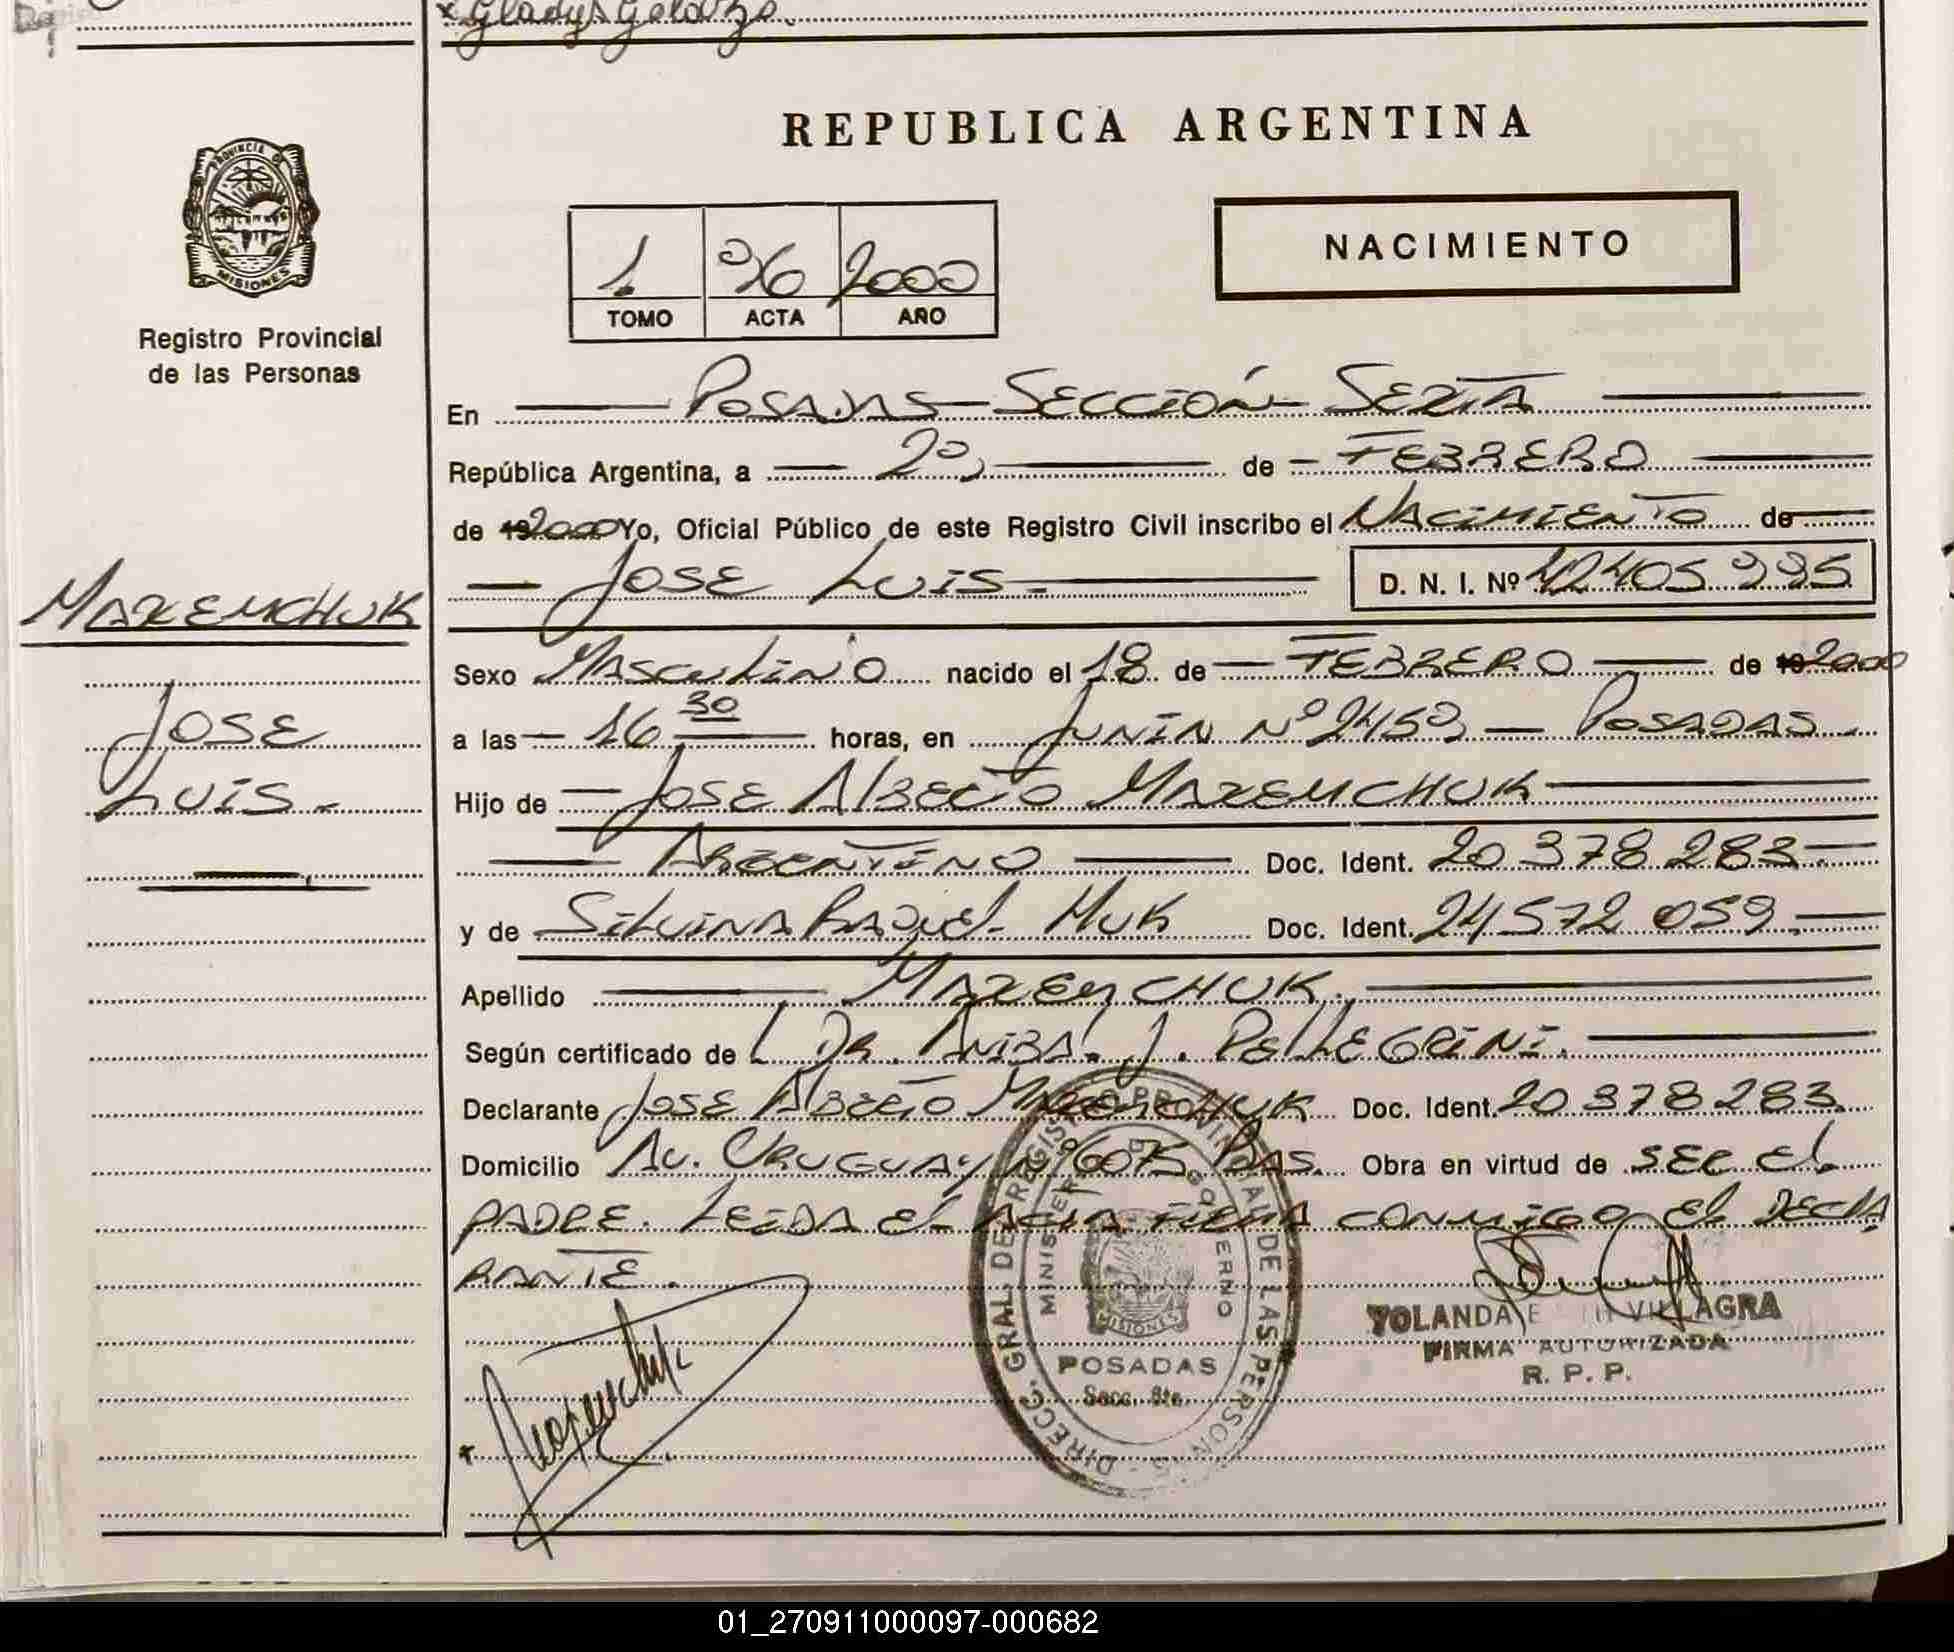 Gladys Golarzo.
PROVINCIA DE
MISIONES
Registro Provincial
de las Personas
REPUBLICA ARGENTINA
NACIMIENTO
1 96 2000
TOMO ACTA AÑO
En POSADAS - SECCIÓN - SEXTA
República Argentina, a 20 de FEBRERO
de 19 2000 Yo, Oficial Público de este Registro Civil inscribo el NACIMIENTO de
JOSE LUIS D. N. I. Nº 42405 995
MAZEMCHUK
JOSE
LUIS.
Sexo MASCULINO nacido el 18 de FEBRERO de 19 2000
a las 16 30 horas, en JUNIN Nº 2450 - POSADAS.
Hijo de JOSE AlBERTO MAZEMCHUK
ARGENTINO Doc. Ident. 20 378 283.
y de SILVINA RAQUEL HUK Doc. Ident. 24 572 059.
Apellido MAZEMCHUK.
Según certificado de DR. ANIBAL J. PELLEGRINI.
Declarante JOSE AlBERTO MAZEMCHUK Doc. Ident. 20 378 283.
Domicilio AV. URUGUAY Nº 6075 PDAS. Obra en virtud de SER EL
PADRE. LEIDA EL ACTA FIRMA CONMIGO EL DECLA
RANTE.
DIRECC. GRAL. DE REGISTRO PROVINCIAL DE LAS PERSONAS
MINISTERIO DE GOBIERNO
MISIONES
POSADAS
Secc. 6ta.
YOLANDA E VILLAGRA
FIRMA AUTORIZADA
R. P. P.
01_270911000097-000682